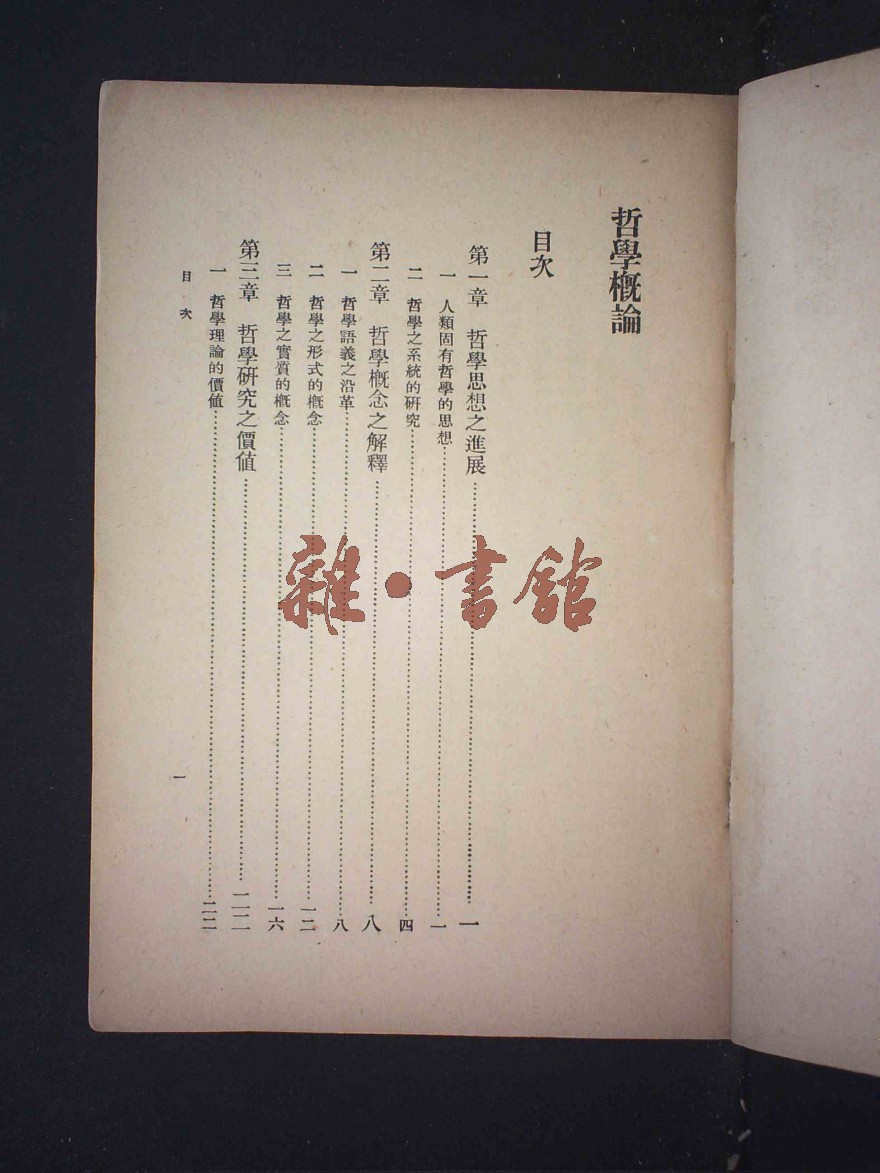 哲學概論
目次
第一章 哲學思想之進展……一
一 人類固有哲學的思想……一
二 哲學之系統的研究……四
第二章 哲學概念之解釋……八
一 哲學語義之沿革……八
二 哲學之形式的概念……一二
三 哲學之實質的概念……一六
第三章 哲學研究之價值……二二
一 哲學理論的價值……二二
目次
一
雜·書館